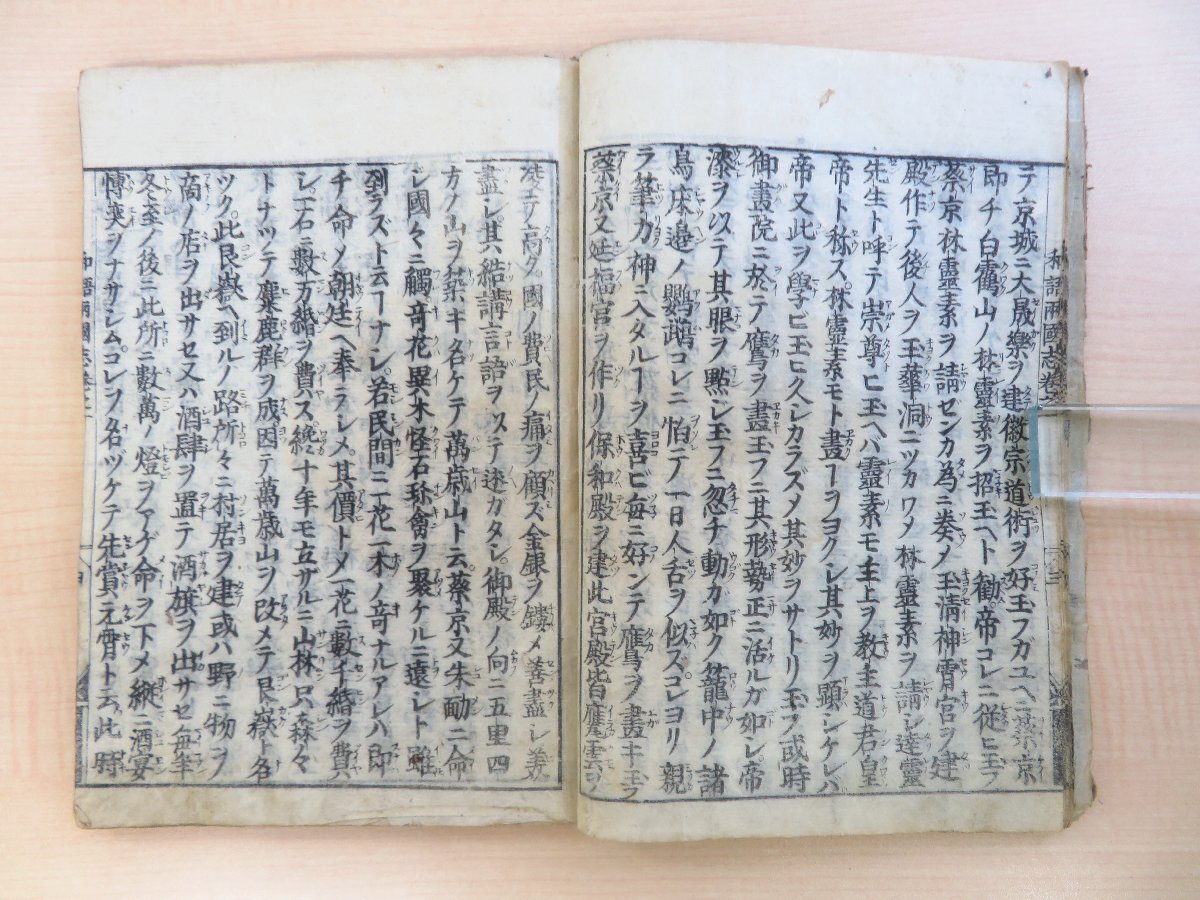 テ京城ニ大晟樂ヲ建徽宗道術ヲ好玉フガユヘニ蔡京
即チ白霱山ノ林靈素ヲ招玉ヘト勸帝コレニ從ヒ玉フ
蔡京林靈素ヲ請ゼンカ為ニ奏ノ玉清神霄宮ヲ建
殿作テ後人ヲ玉華洞ニツカワメ林靈素ヲ請シ達靈
先生ト呼テ崇尊ヒ玉ヘバ靈素モ主上ヲ教主道君皇
帝ト称ス林靈素モト畫ーヲヨクシ其妙ヲ顕シケレバ
帝又此ヲ學ビ玉ヒ久シカラズメ其妙ヲサトリ玉フ或時
御畫院ニ於テ鷹ヲ畫玉フニ其形勢正ニ活ルガ如シ帝
漆ヲ以テ其眼ヲ點シ玉フニ忽チ動ガ如ク籠中ノ諸
鳥床邉ノ鸚鵡コレニ怕テ一日人舌ヲ似スコレヨリ親
ラ筆力神ニ入タルーヲ喜ビ毎ニ好ンテ鷹ヲ畫キ玉フ
蔡京又延福宮ヲ作リ保和殿ヲ建此宮殿皆雁雲ヲ
凌テ高ク國ノ費民ノ痛ヲ顧ズ金銀ヲ鏤メ善盡シ美
盡シ其結講言語ヲ以テ述カタシ御殿ノ向ニ五里四
方ノ山ヲ築キ名ケテ萬歳山ト云蔡京又朱勔ニ命
シ國々ニ觸竒花異木怪石珎禽ヲ聚ケルニ遠シト雖
到ラスト云ーナシ若民間ニ一花一木ノ竒ナルアレハ即
チ命ノ朝廷ヘ奉ラシメ其價トメ一花ニ數千緡ヲ費
シ一石ニ數万緡ヲ費ス纔十年モ立サルニ山林只森々
トナツテ麋鹿群ヲ成因テ萬歳山ヲ改メテ艮嶽ト名
ツク此艮嶽ヘ到ルノ路所々ニ村居ヲ建或ハ野ニ物ヲ
商ノ店ヲ出サセ又ハ酒肆ヲ置テ酒旗ヲ出サセ毎年
冬至ノ後ニ此所ニ數萬ノ燈ヲアゲ命ヲ下メ縦ニ酒宴
博奕ヲナサシムコレヲ名ヅケテ先賞元宵ト云此時
和語兩國志卷之